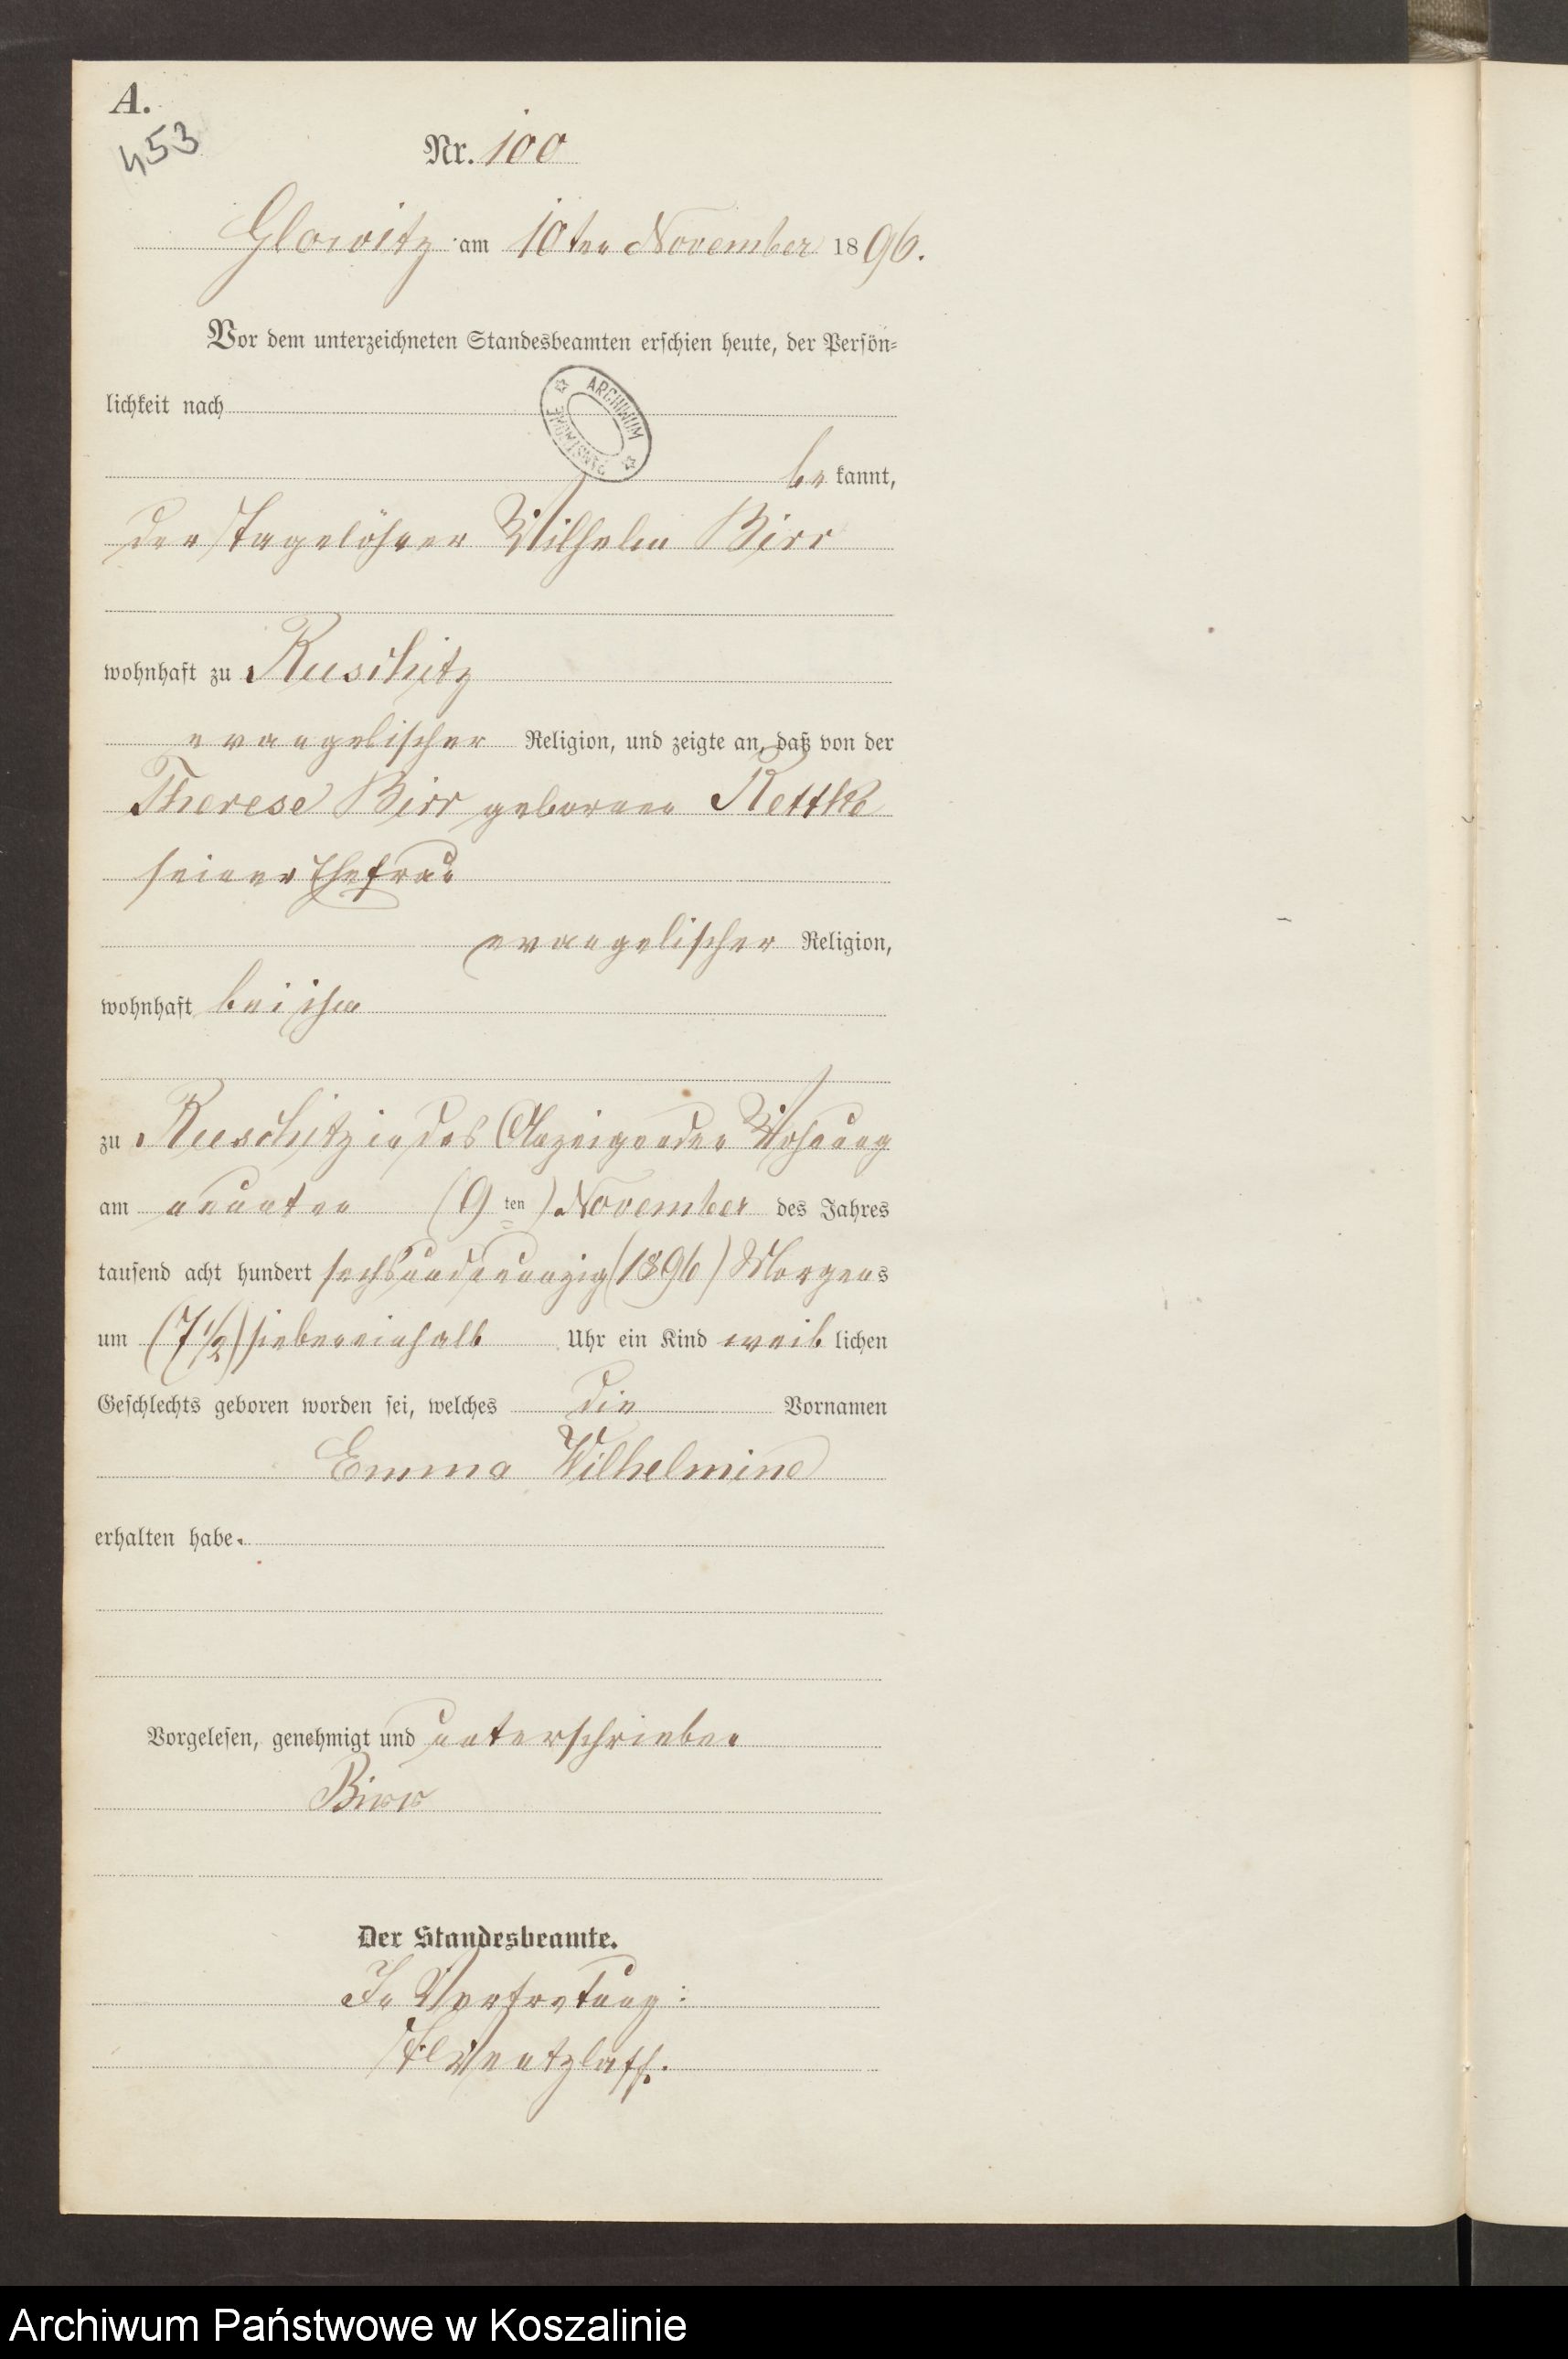 A.
453
Nr. 100
Glowitz am 10ten November 1896.
Vor dem unterzeichneten Standesbeamten erschien heute, der Persön-
lichkeit nach
ARCHIWUM
PAŃSTWOWE
be kannt,
der Tagelöhner Wilhelm Birr
wohnhaft zu Ruschitz
evangelischer Religion, und zeigte an, daß von der
Therese Birr geborenen Rettke
seiner Ehefrau
evangelischer Religion,
wohnhaft bei ihm
zu Ruschitz in des Anzeigenden Wohnung
am neunten (9 ten) November des Jahres
tausend acht hundert sechsundneunzig (1896) Morgens
um (7 1/2) siebeneinhalb Uhr ein Kind weib lichen
Geschlechts geboren worden sei, welches die Vornamen
Emma Wilhelmine
erhalten habe.
Vorgelesen, genehmigt und unterschrieben
Birr
Der Standesbeamte.
In Vertretung:
Wentzlaff.
Archiwum Państwowe w Koszalinie